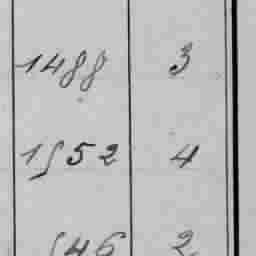 1488 3
1552 4
546 2